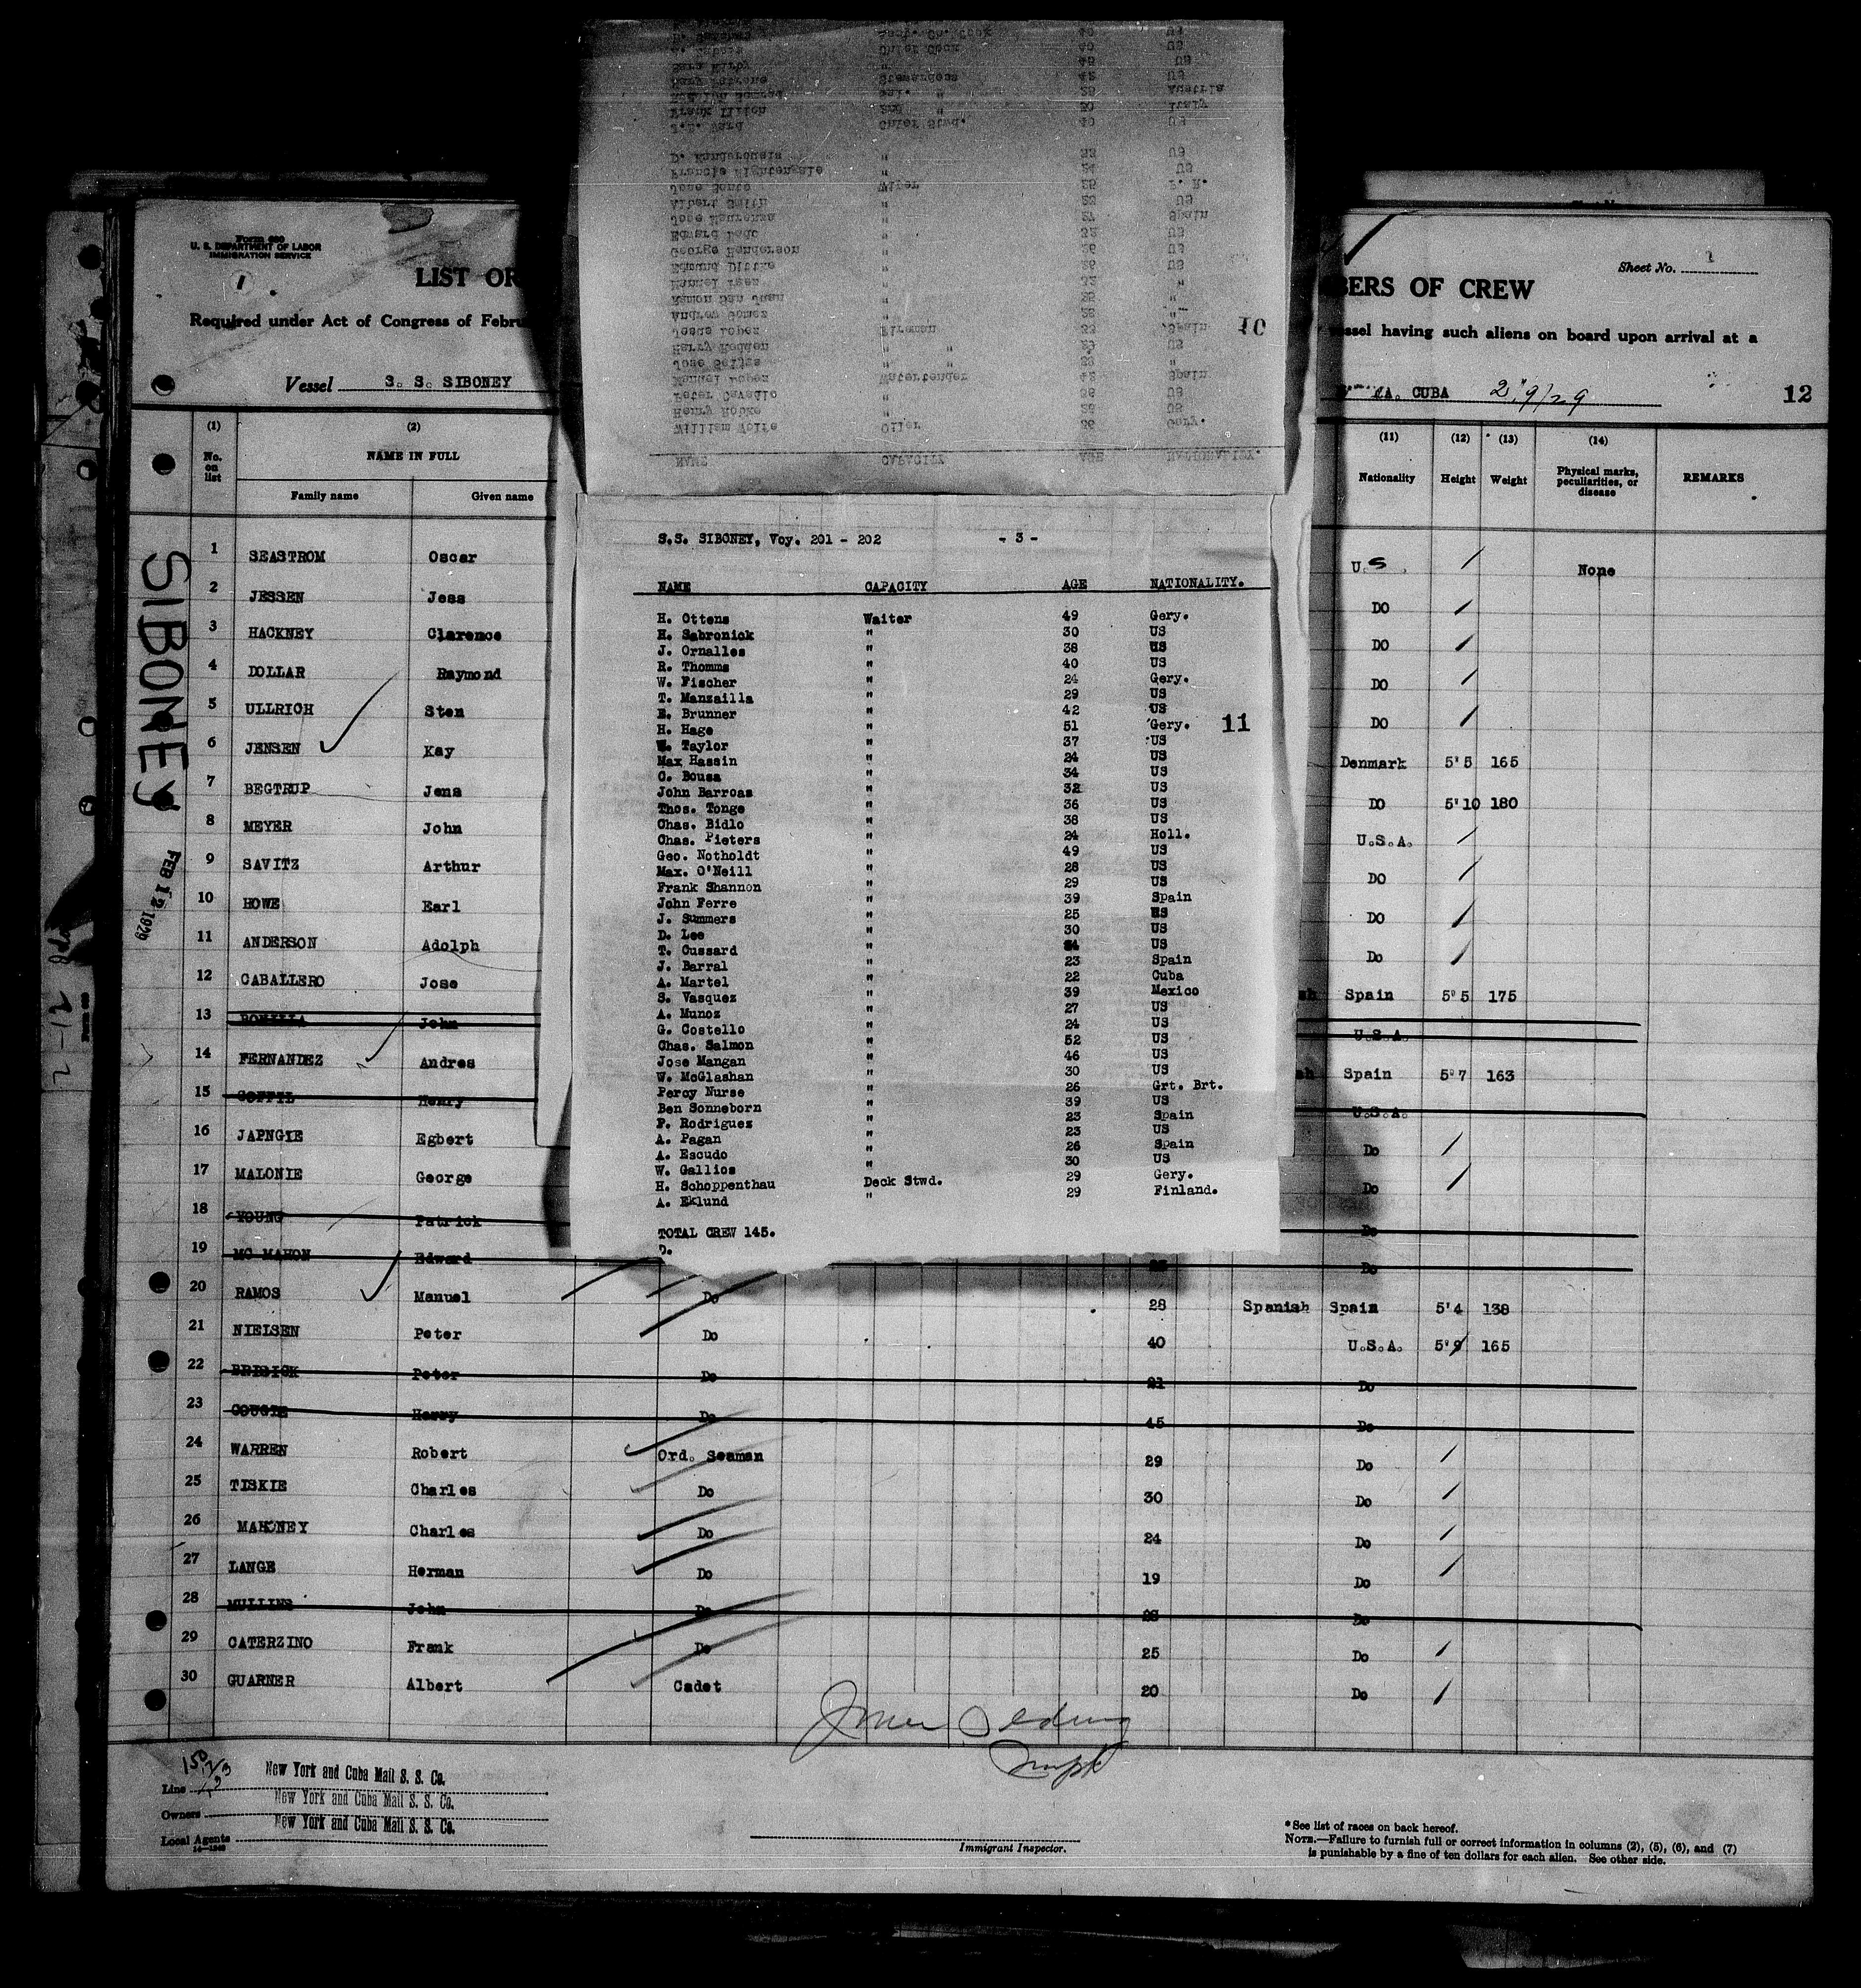 Form 680
U. S. DEPARTMENT OF LABOR
IMMIGRATION SERVICE
1
LIST OR
Required under Act of Congress of Febru
Vessel S. S. SIBONEY
BERS OF CREW
Sheet No. 1
vessel having such aliens on board upon arrival at a
CUBA 2/9/29
12
(1) (2) (11) (12) (13) (14)
No. on list NAME IN FULL Nationality Height Weight Physical marks, peculiarities, or disease REMARKS
Family name Given name
SIBONEY
FEB 12 1929
1 SEASTROM Oscar U.S. None
2 JESSEN Jess DO
3 HACKNEY Clarence DO
4 DOLLAR Raymond DO
5 ULLRICH Sten DO
6 JENSEN Kay Denmark 5'5 165
7 BEGTRUP Jens DO 5'10 180
8 MEYER John U.S.A.
9 SAVITZ Arthur DO
10 HOWE Earl DO
11 ANDERSON Adolph Do
12 CABALLERO Jose Spain 5'5 175
13 BONILLA John U.S.A.
14 FERNANDEZ Andres Spain 5'7 163
15 COFFIL Henry U.S.A.
16 JAPNGIE Egbert Do
17 MALONIE George Do
18 YOUNG Patrick Do
19 MC MAHON Edward Do
20 RAMOS Manuel Do 28 Spanish Spain 5'4 138
21 NIELSEN Peter Do 40 U.S.A. 5'9 165
22 Peter Do 21 Do
23 Harry Do 45 Do
24 WARREN Robert Ord. Seaman 29 Do
25 TISKIE Charles Do 30 Do
26 MAHONEY Charles Do 24 Do
27 LANGE Herman Do 19 Do
28 MULLINS John Do 28 Do
29 CATERZINO Frank Do 25 Do
30 GUARNER Albert Cadet 20 Do
Line New York and Cuba Mail S. S. Co.
Owners New York and Cuba Mail S. S. Co.
Local Agents New York and Cuba Mail S. S. Co.
Immigrant Inspector.
* See list of races on back hereof.
NOTE.—Failure to furnish full or correct information in columns (2), (5), (6), and (7)
is punishable by a fine of ten dollars for each alien. See other side.
NAME CAPACITY AGE NATIONALITY.
William Wolfe Oiler 36 Gery.
Henry Robke " US
Peter Cavadio " 36 US
Manuel Lopez Watertender 42 Spain
Jose Seijas " " "
Harry Hodden " " 29 US
Jesus Lopez Fireman 33 Spain
10
Andrew Gomez " "
Ramon San Juan " "
Manuel " "
Edmund Dittke " 26 US
George Henderson " 26 US
Edward " 32 US
Jose " 27 Spain
Albert Smith " 23 US
Jose Wiper 25 P. R.
Francis Nightengale " 24 US
D. " US
Ward Chief Stwd. 40 US
Frank 2nd " 30 Italy
" Austria
Stewardess 42 US
Kirby " US
Chief Cook 40 US
S.S. SIBONEY, Voy. 201 - 202 - 3 -
NAME CAPACITY AGE NATIONALITY.
H. Ottens Waiter 49 Gery.
H. Sabronick " 30 US
J. Ornalles " 38 US
R. Thomms " 40 US
W. Fischer " 24 Gery.
T. Manzailla " 29 US
E. Brunner " 42 US
H. Hage " 51 Gery.
11
W. Taylor " 37 US
Max Hassin " 24 US
C. Bousa " 34 US
John Barroas " 32 US
Thos. Tonge " 36 US
Chas. Bidlo " 38 US
Chas. Pieters " 24 Holl.
Geo. Notholdt " 49 US
Max. O'Neill " 28 US
Frank Shannon " 29 US
John Ferre " 39 Spain
J. Summers " 25 US
D. Lee " 30 US
T. Cussard " 24 US
J. Barral " 23 Spain
A. Martel " 22 Cuba
S. Vasquez " 39 Mexico
A. Munoz " 27 US
G. Costello " 24 US
Chas. Salmon " 52 US
Jose Mangan " 46 US
W. McGlashan " 30 US
Percy Nurse " 26 Grt. Brt.
Ben Sonneborn " 39 US
F. Rodriguez " 23 Spain
A. Pagan " 23 US
A. Escudo " 26 Spain
W. Gallios " 30 US
H. Schoppenthau Deck Stwd. 29 Gery.
A. Eklund " 29 Finland.
TOTAL CREW 145.
D.